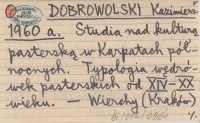 DOBROWOLSKI Kazimierz
1960 a. Studia nad kulturą
pasterską w Karpatach pół-
nocnych. Typologia wędró-
wek pasterskich od XIV-XX
wieku. — Wierchy (Kraków)